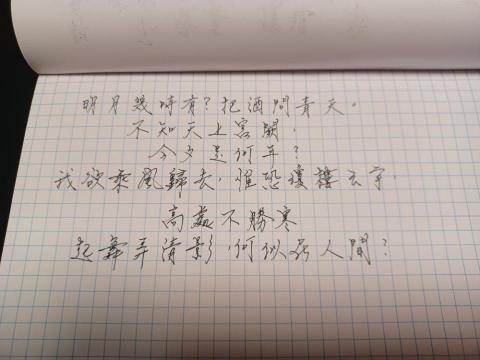 明月幾時有？把酒問青天。
不知天上宮闕，
今夕是何年？
我欲乘風歸去，惟恐瓊樓玉宇，
高處不勝寒
起舞弄清影，何似在人間？